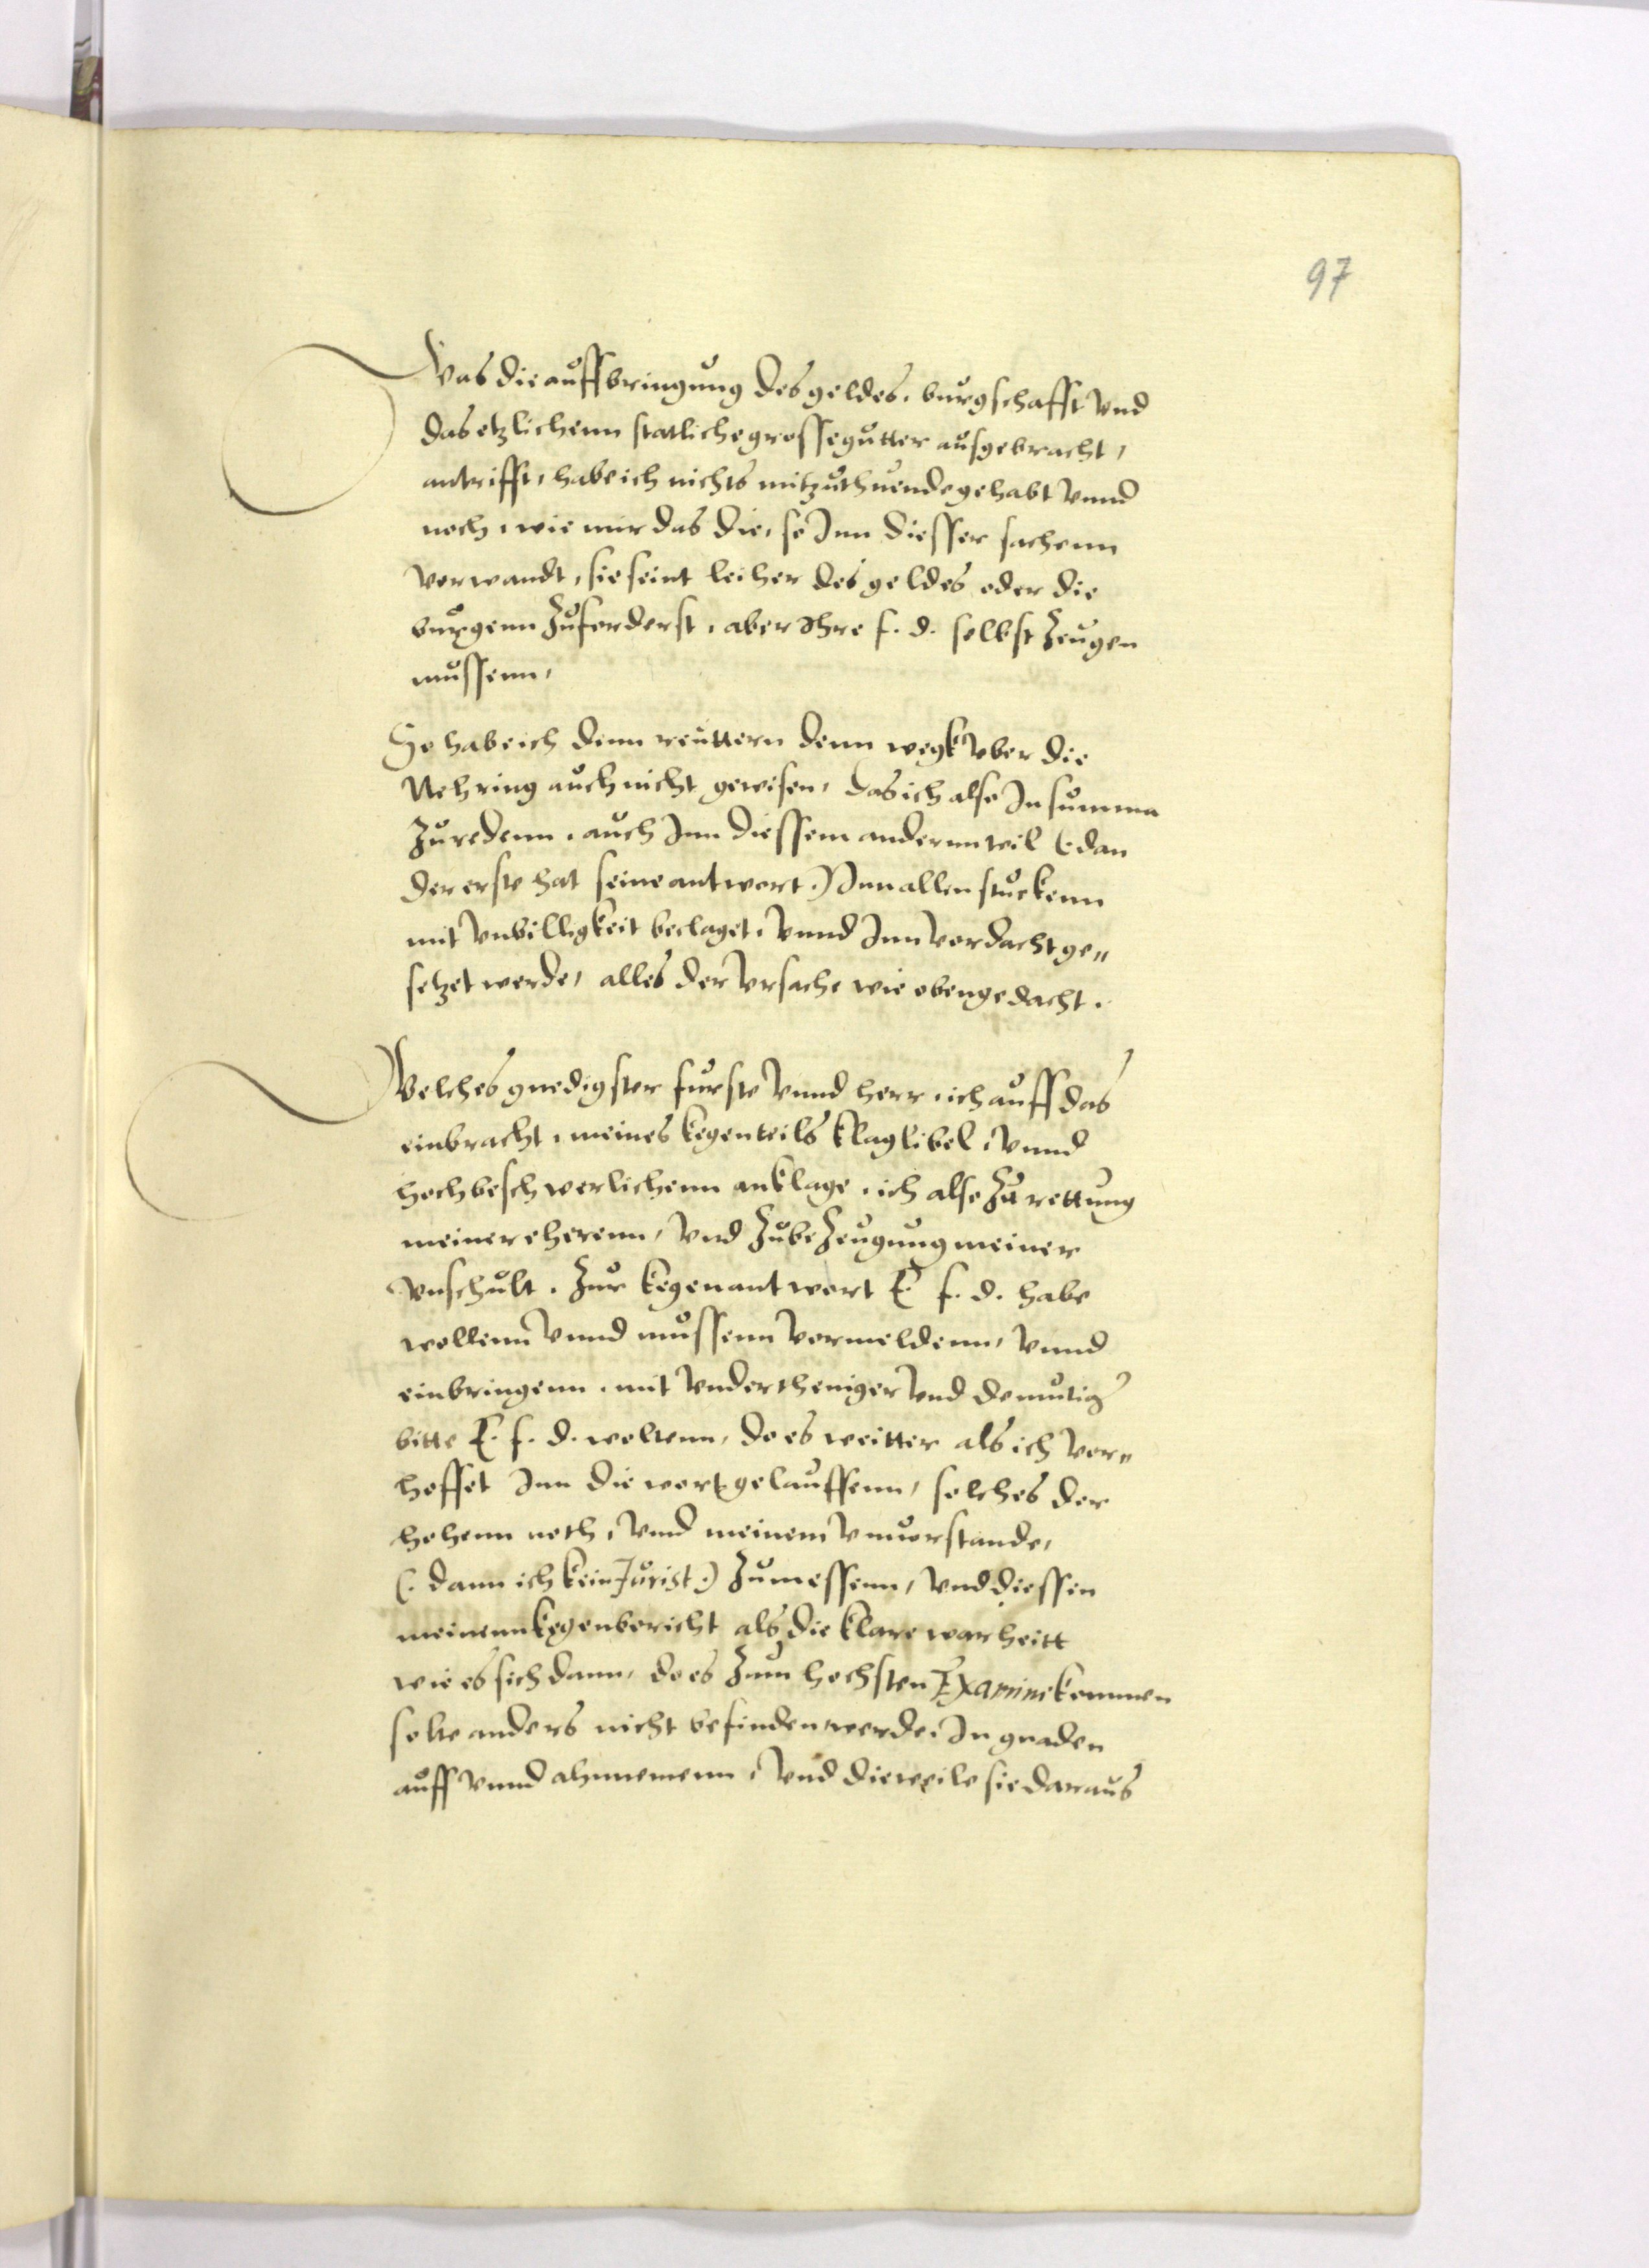 97
Was die auffbringung des geldes, burgschafft vnd
das etzlichenn statliche grosse gutter ausgebracht,
antrifft, habe ich nichts mitzuthuende gehabt vnnd
noch, wie mir das die, so Inn diesser sachenn
verwandt, sie seint leiher des geldes oder die
burgenn zuforderst, aber Ihre f. d. selbst zeugen
mussenn,
So habe ich denn reuttern denn wegk vber die
Nehring auch nicht gewisen, das ich also In summa
zuredenn, auch Inn diessem andernn teil (: dan
der erste hat seine antwort :) Inn allen stuckenn
mit vnbilligkeit beclaget, vnnd Inn verdacht ge„
setzet werde, alles der vrsache wie obengedacht.
Welches gnedigster furste vnnd herr, ich auff das
einbracht, meines kegenteils klaglibel, vnnd
hochbeschwerlichenn anklage, ich also zu rettung
meiner eherenn, vnd zubezeugung meiner
vnschult, zur kegenantwort E. f. d. habe
wollenn vnnd mussenn vermeldenn, vnnd
einbringenn, mit vndertheniger vnd demutig
bitte E. f. d. woltenn, do es weitter als ich ver„
hoffet Inn die wort gelauffenn, solches der
hohenn noth, vnd meinem vnuorstande,
(: dann ich kein Jurist :) zumessenn, vnd diessen
meinenn kegenbericht als die klare warheitt
wie es sich dann, do es zum hochsten Examine kommen
solte anders nicht befinden werde, In gnaden
auff vnnd ahnnemenn, vnd dieweile sie daraus